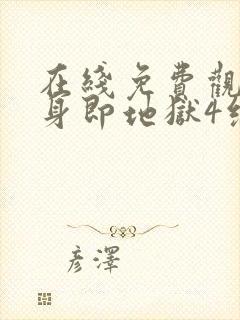 在綫免費觀
身即地獄4
彦澤